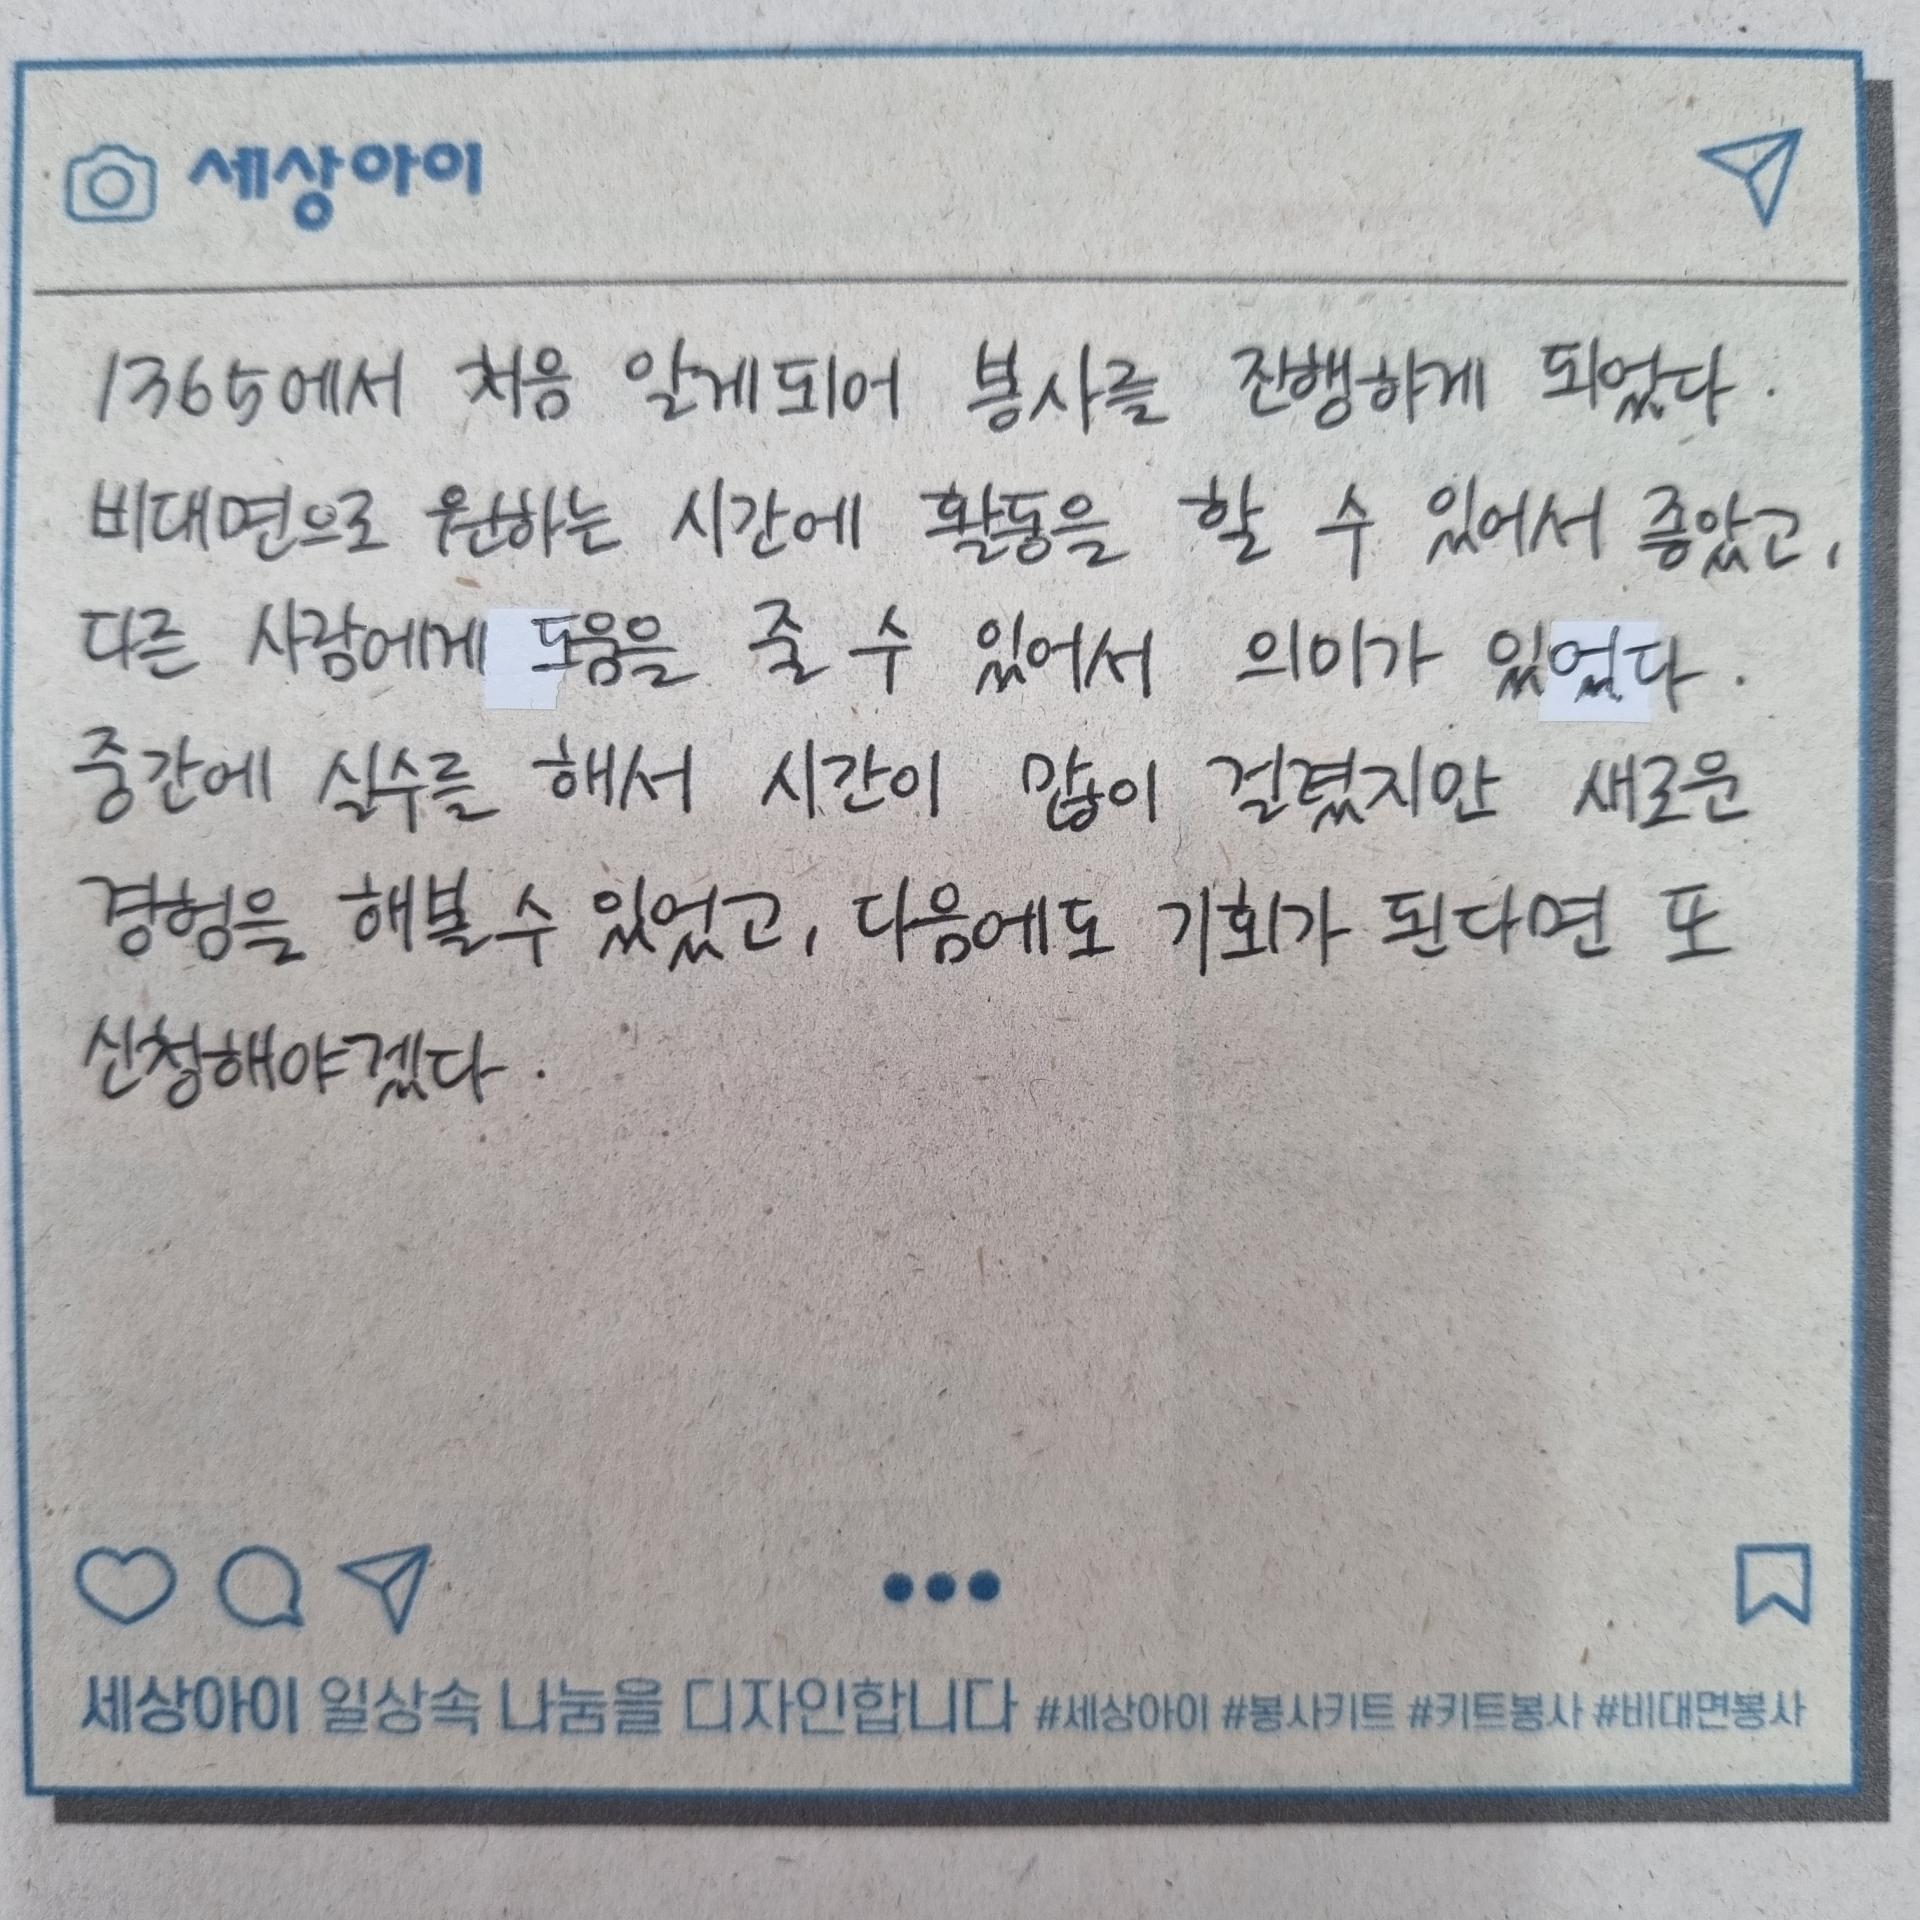 세상아이
1365에서 처음 알게되어 봉사를 진행하게 되었다.
비대면으로 원하는 시간에 활동을 할 수 있어서 좋았고,
다른 사람에게 도움을 줄 수 있어서 의미가 있었다.
중간에 실수를 해서 시간이 많이 걸렸지만 새로운
경험을 해볼 수 있었고, 다음에도 기회가 된다면 또
신청해야겠다.
세상아이 일상속 나눔을 디자인합니다 #세상아이 #봉사키트 #키트봉사 #비대면봉사